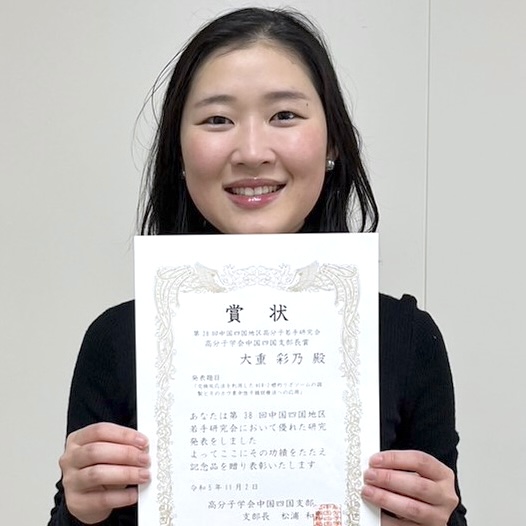 賞 状
第38回中国四国地区高分子若手研究会
高分子学会中国四国支部長賞
大重 彩乃 殿
発表題目
あなたは第 38 回中国四国地区
若手研究会において優れた研究
発表をしました
よってここにその功績をたたえ
記念品を贈り表彰いたします
令和5年11月2日
高分子学会中国四国支部
支部長 松浦 和